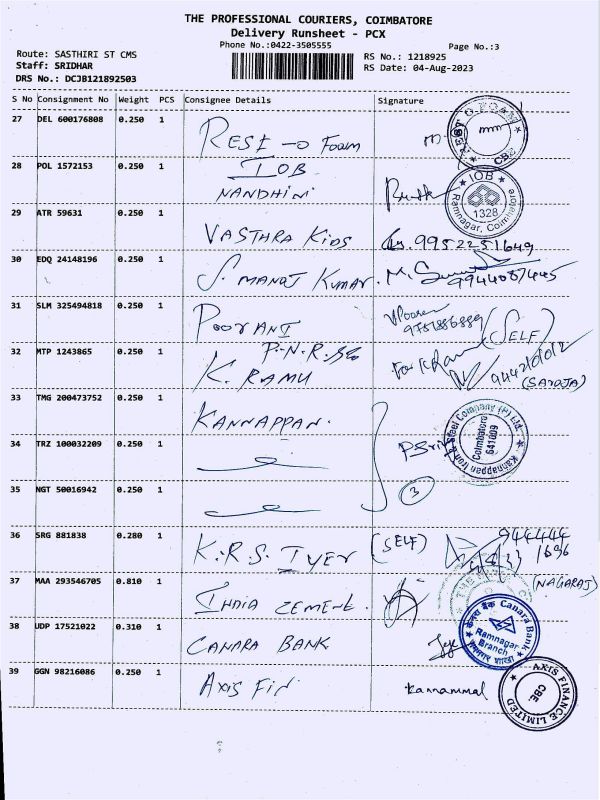 THE PROFESSIONAL COURIERS, COIMBATORE
Delivery Runsheet - PCX
Phone No.:0422-3505555
Page No.:3
Route: SASTHIRI ST CMS
Staff: SRIDHAR
DRS No.: DCJB121892503
RS No.: 1218925
RS Date: 04-Aug-2023
S No Consignment No Weight PCS Consignee Details Signature
27 DEL 600176808 0.250 1 RESI-O Foam
28 POL 1572153 0.250 1 IOB
NANDHINI
IOB
Ramnagar, Coimbatore
1328
29 ATR 59631 0.250 1 VASTHRA KIDS 9952251649
30 EDQ 24148196 0.250 1 S. MANOJ KUMAR. 9944087445
31 SLM 325494818 0.250 1 POORANI 9751886889 (SELF)
P.N.R.
32 MTP 1243865 0.250 1 K. RAMU (SAROJA)
33 TMG 200473752 0.250 1 KANNAPPAN.
Kannappan Iron & Steel Company (P) Ltd.
Coimbatore
641009
34 TRZ 100032209 0.250 1
35 NGT 50016942 0.250 1 3
36 SRG 881838 0.280 1 K.R.S. IYER (SELF) 944444
1696
(NAGARAJ)
37 MAA 293546705 0.810 1 INDIA CEMENT.
38 UDP 17521022 0.310 1 CANARA BANK
केनरा बैंक Canara Bank
Ramnagar
Branch
39 GGN 98216086 0.250 1 AXIS FIN Kannammal
AXIS FINANCE LIMITED
CBE.